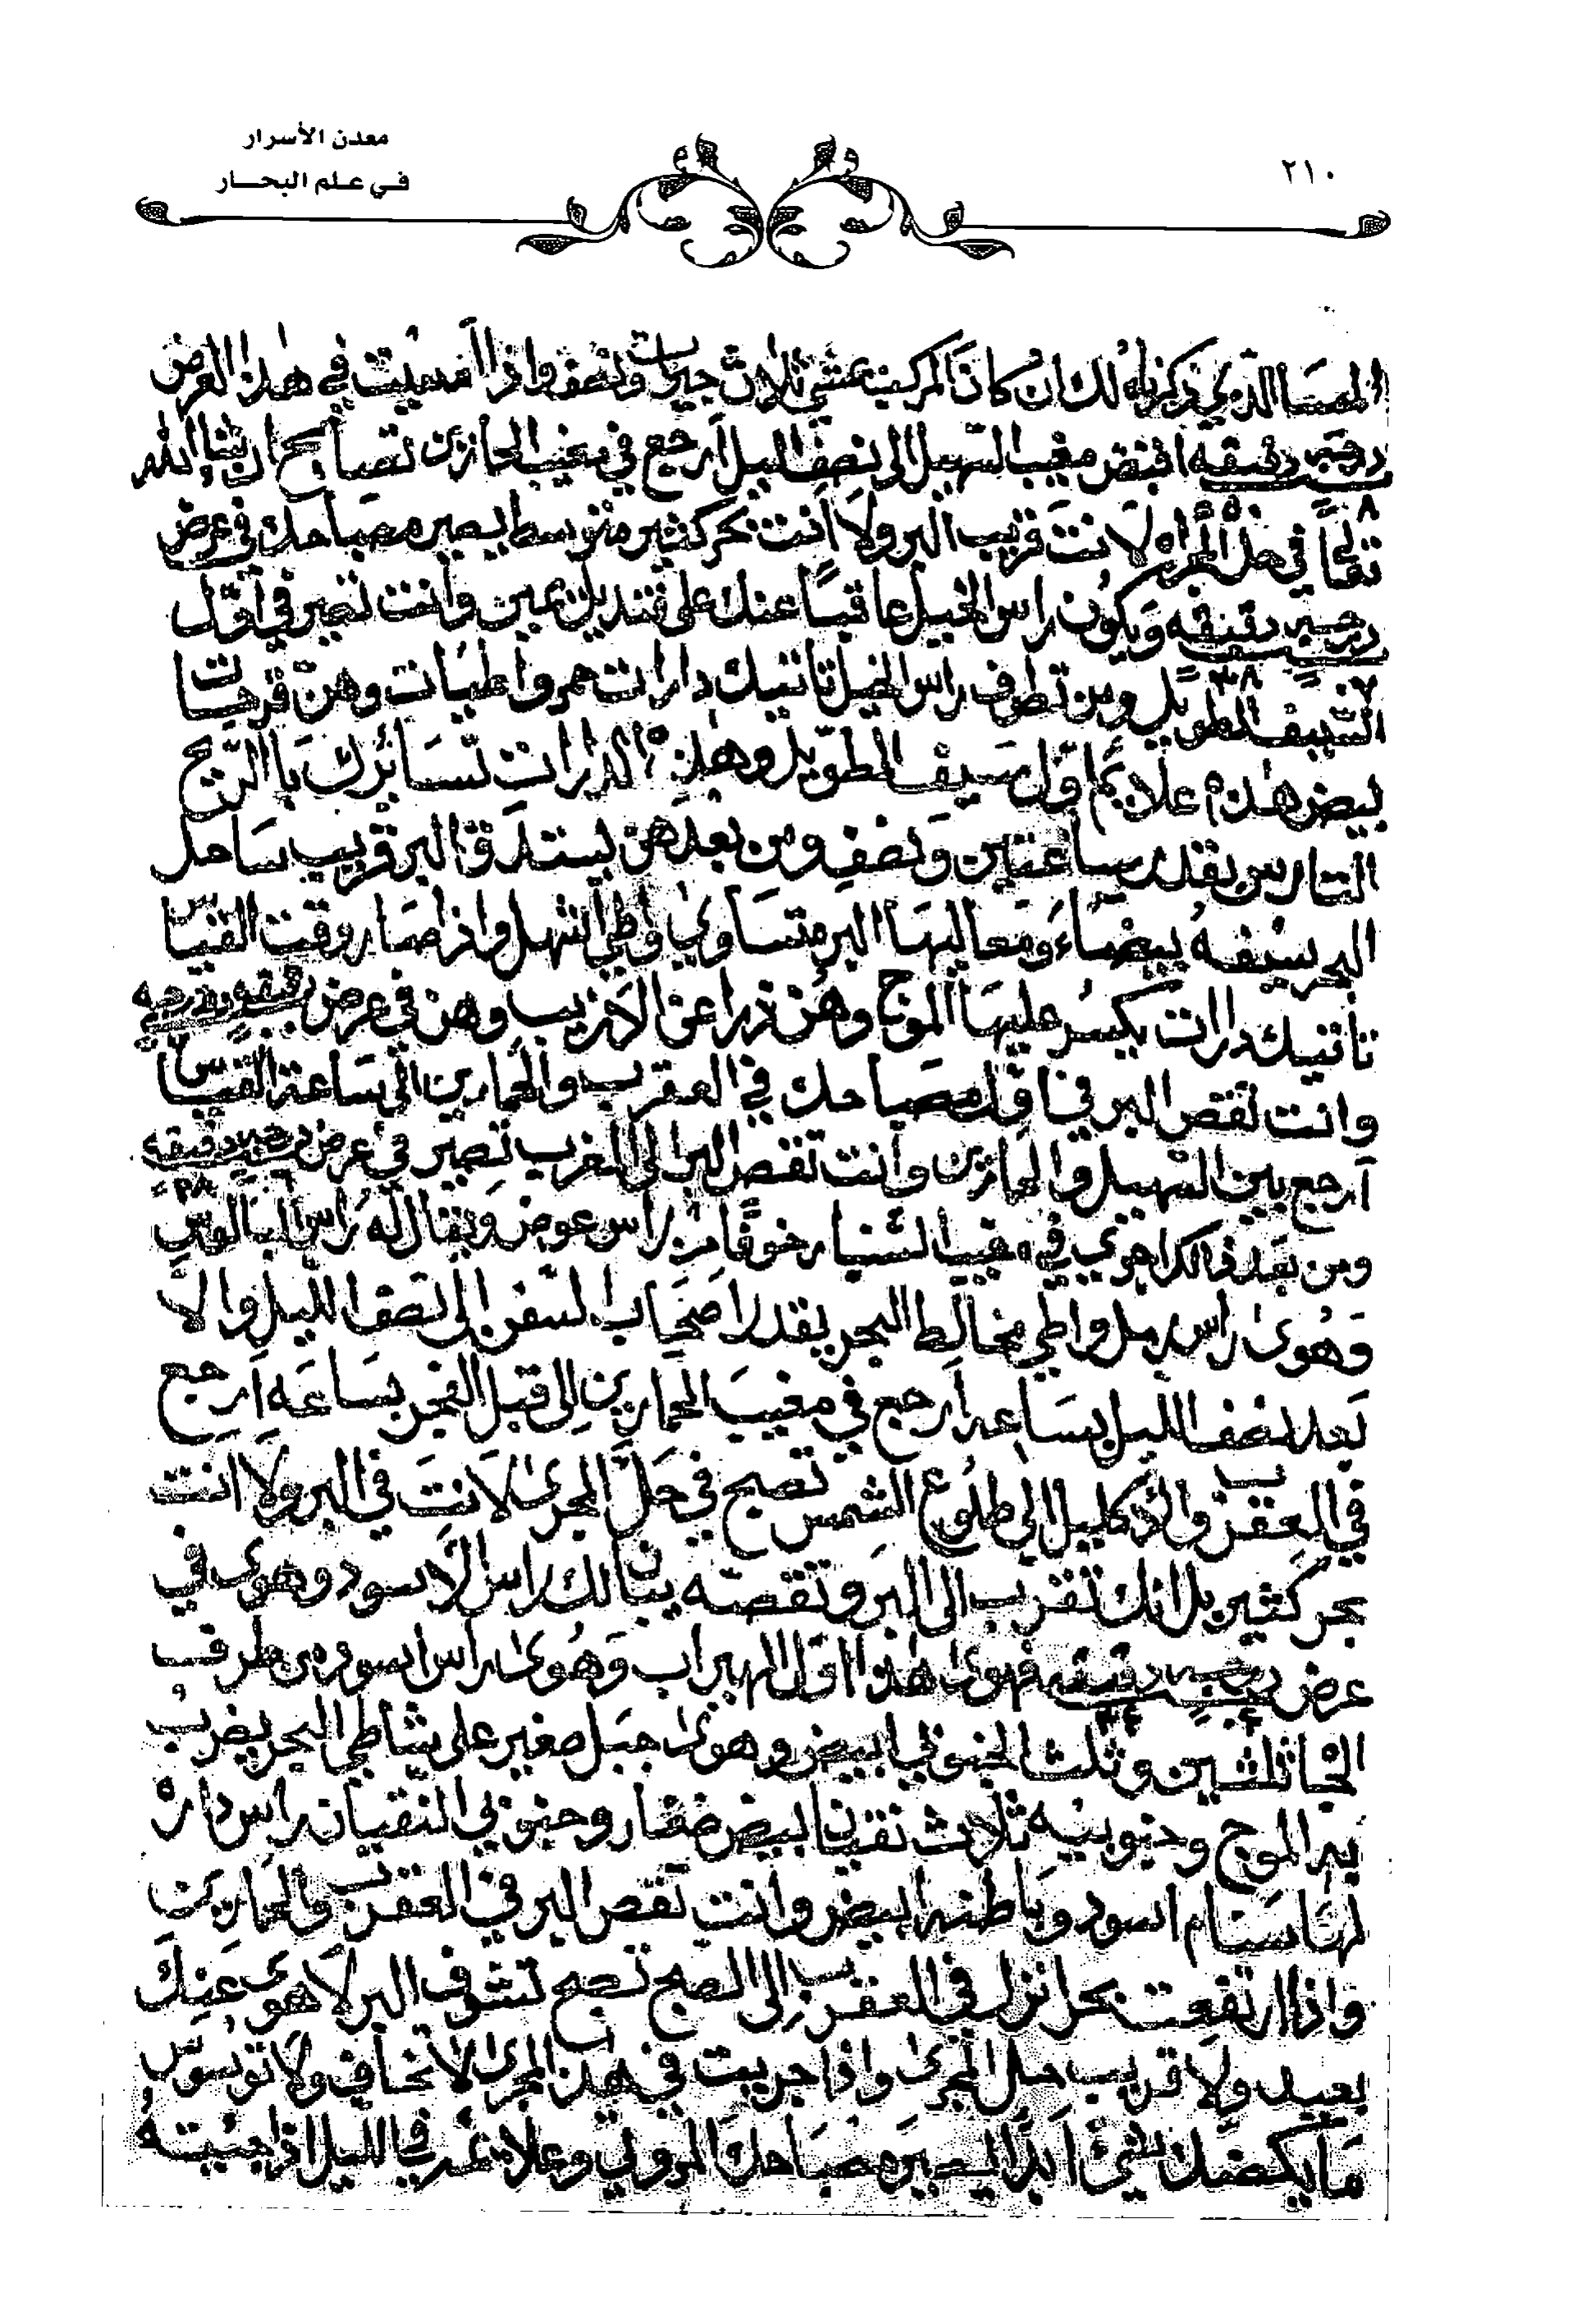 معدن الأسرار
في علم البحار
٢١٠
المسا الذي ذكرناه لك ان كان المركب يمشي ثلاث جيبات ونصف واذا أمسيت في هذا العرض
درجه دقيقه اقبض مغيب السهيل الى نصف الليل أرجع في مغيب الحمارين تصابح ان شاء الله
٨ ٥٥
تعالى في حل المجراه لا نت قريب البر ولا انت بحر كثير متوسط يصير مصباحك في عرض
درجه دقيقه ويكون راس الخيل عاقبا عنك على يمين وانت تصير في اول
٠٧ ٣٨
السيف الطويل ومن تطوف راس الخيل تاتيك دارات حمر واطيات وهن قرحات
بيض هذه علايم اول سيف الطويل وهذه الدارات تسايرك با الريح
بقدر ساعتين ونصف ومن بعدهن البر قريب ساحل
البحر سيفه بيضاء ومعاليها البر متساوي واطي سهل واذا صار وقت القياس
تاتيك دارات يكسر عليها الموج وهن ذراعن الازيب وهن في عرض دقيقه درجه
وانت تقص البر في اول مصباحك في العقرب والحمارين الى ساعة القياس
أرجع بين السهيل والحمارين وانت تقص البر الى المغرب تصير في عرض درجه دقيقه
ومن بعد ذالك اجري في مغيب السندبار خوفا من راس عوض ويقال له راس
وهوى راس رمل واطي مخالط البحر يغدر اصحاب السفن الى نصف الليل والا
بعد نصف الليل بساعه أرجع في مغيب الحمارين الى قبل الفجر بساعه أرجع
في العقرب والاكليل الى طلوع الشمس تصبح في حل المجرى لانت في البر ولا انت
بحر كثير بل انك تقرب الى البر وتقصه يبان لك راس الاسود وهوى في
عرض درجه دقيقه فهوى هذا اول الهيراب وهوى راس اسود من طرف
الجاه ثلثين وثلث الجنوبي ابيض وهوى جبل صغير على شاطي البحر يضرب
به الموج وجنوبيه ثلاث نقيان بيض صغار وجنوبي النقيان راس داره
لها سنام اسود وباطنه ابيض وانت تقص البر في العقرب والحمارين
واذا ارتفعت بحر انزل في العقرب الى الصبح تصبح تشوف البر لا هوى عنك
بعيد ولا قريب حل المجرى واذا جريت في هذا المجرى لا تخاف ولا توسوس
ما يكضك شيء ابدا يصير مصباحك المروتي وعلامته في الليل اذا جيته